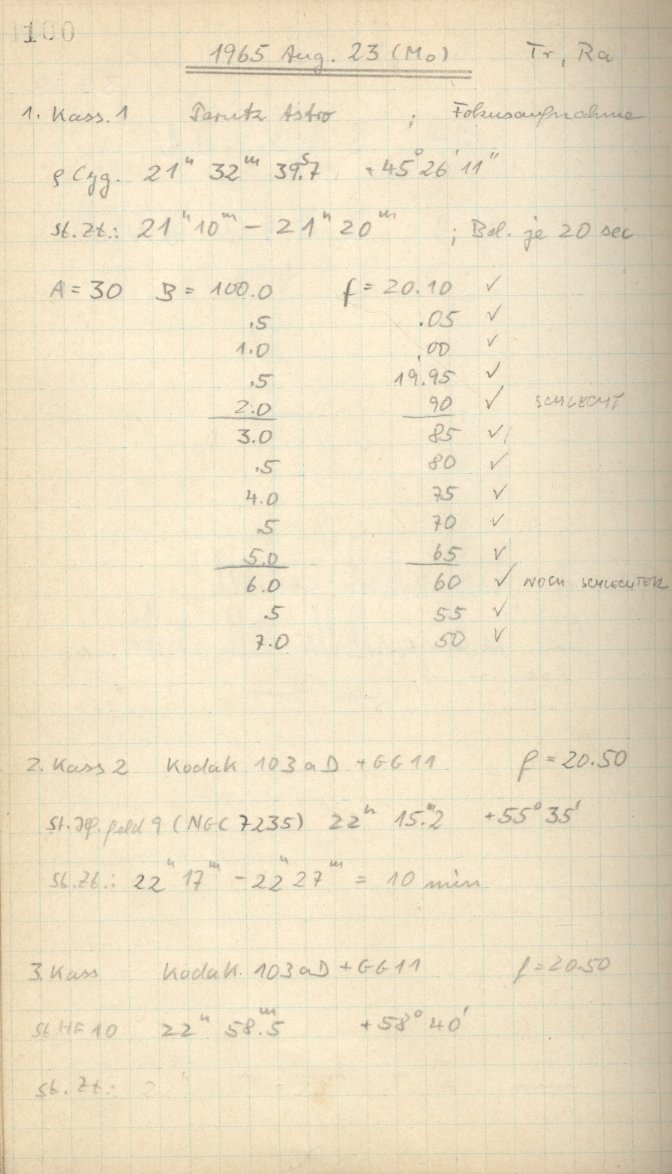 100
1965 Aug. 23 (Mo) Tr, Ra
1. Kass. 1 Perutz Astro ; Fokusaufnahme
ρ Cyg. 21ʰ 32ᵐ 39ˢ.7 +45° 26' 11"
St. Zt.: 21ʰ 10ᵐ – 21ʰ 20ᵐ ; Bel. je 20 sec
A = 30 B = 100.0 f = 20.10 ✓
.5 .05 ✓
1.0 .00 ✓
.5 19.95 ✓
2.0 90 ✓ SCHLECHT
3.0 85 ✓
.5 80 ✓
4.0 75 ✓
.5 70 ✓
5.0 65 ✓
6.0 60 ✓ NOCH SCHLECHTER
.5 55 ✓
7.0 50 ✓
2. Kass 2 Kodak 103 aD + GG 11 f = 20.50
St. feld 9 (NGC 7235) 22ʰ 15ᵐ.2 +55° 35'
St. Zt.: 22ʰ 17ᵐ – 22ʰ 27ᵐ = 10 min
3. Kass Kodak 103 aD + GG 11 f = 20.50
St HF 10 22ʰ 58ᵐ.5 +58° 40'
St. Zt.: 2